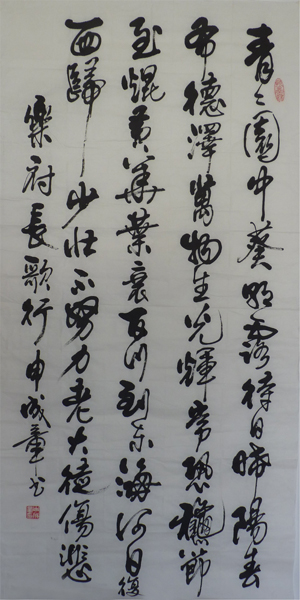 青々園中葵朝露待日晞陽春
布德澤萬物生光輝常恐秋節
至焜黃華葉衰百川到東海何日復
西歸少壯不努力老大徒傷悲
樂府長歌行申成童书